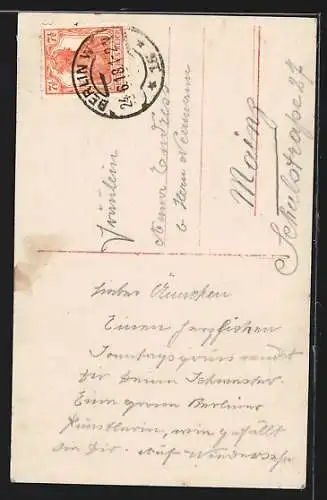 BERLIN W
24.6.18.
* 15 *
7½
7½
Fräulein
Anna Endres
b. Herrn Neumann
Mainz
Schulstraße 27
Liebes Ännchen
Einen herzlichen
Sonntagsgruss sendet
Dir Deine Schwester.
Eine grosse Berliner
Künstlerin, wie gefällt
sie Dir. Auf Wiedersehn